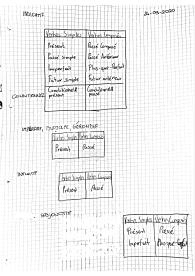 INDICATIF
26-03-2020
Verbes Simples Verbes Composés
Présent Passé Composé
Passé simple Passé Antérieur
Imparfait Plus-que-Parfait
Futur simple Futur antérieur
CONDITIONNEL Conditionnel présent Conditionnel passé
PARTICIPE, GÉRONDIF
Verbes Simples Verbes Composés
Présent Passé
INFINITIF
Verbes Simples Verbes Composés
Présent Passé
SUBJONCTIF
Verbes Simples Verbes Composés
Présent Passé
Imparfait Plus-que-Parfait